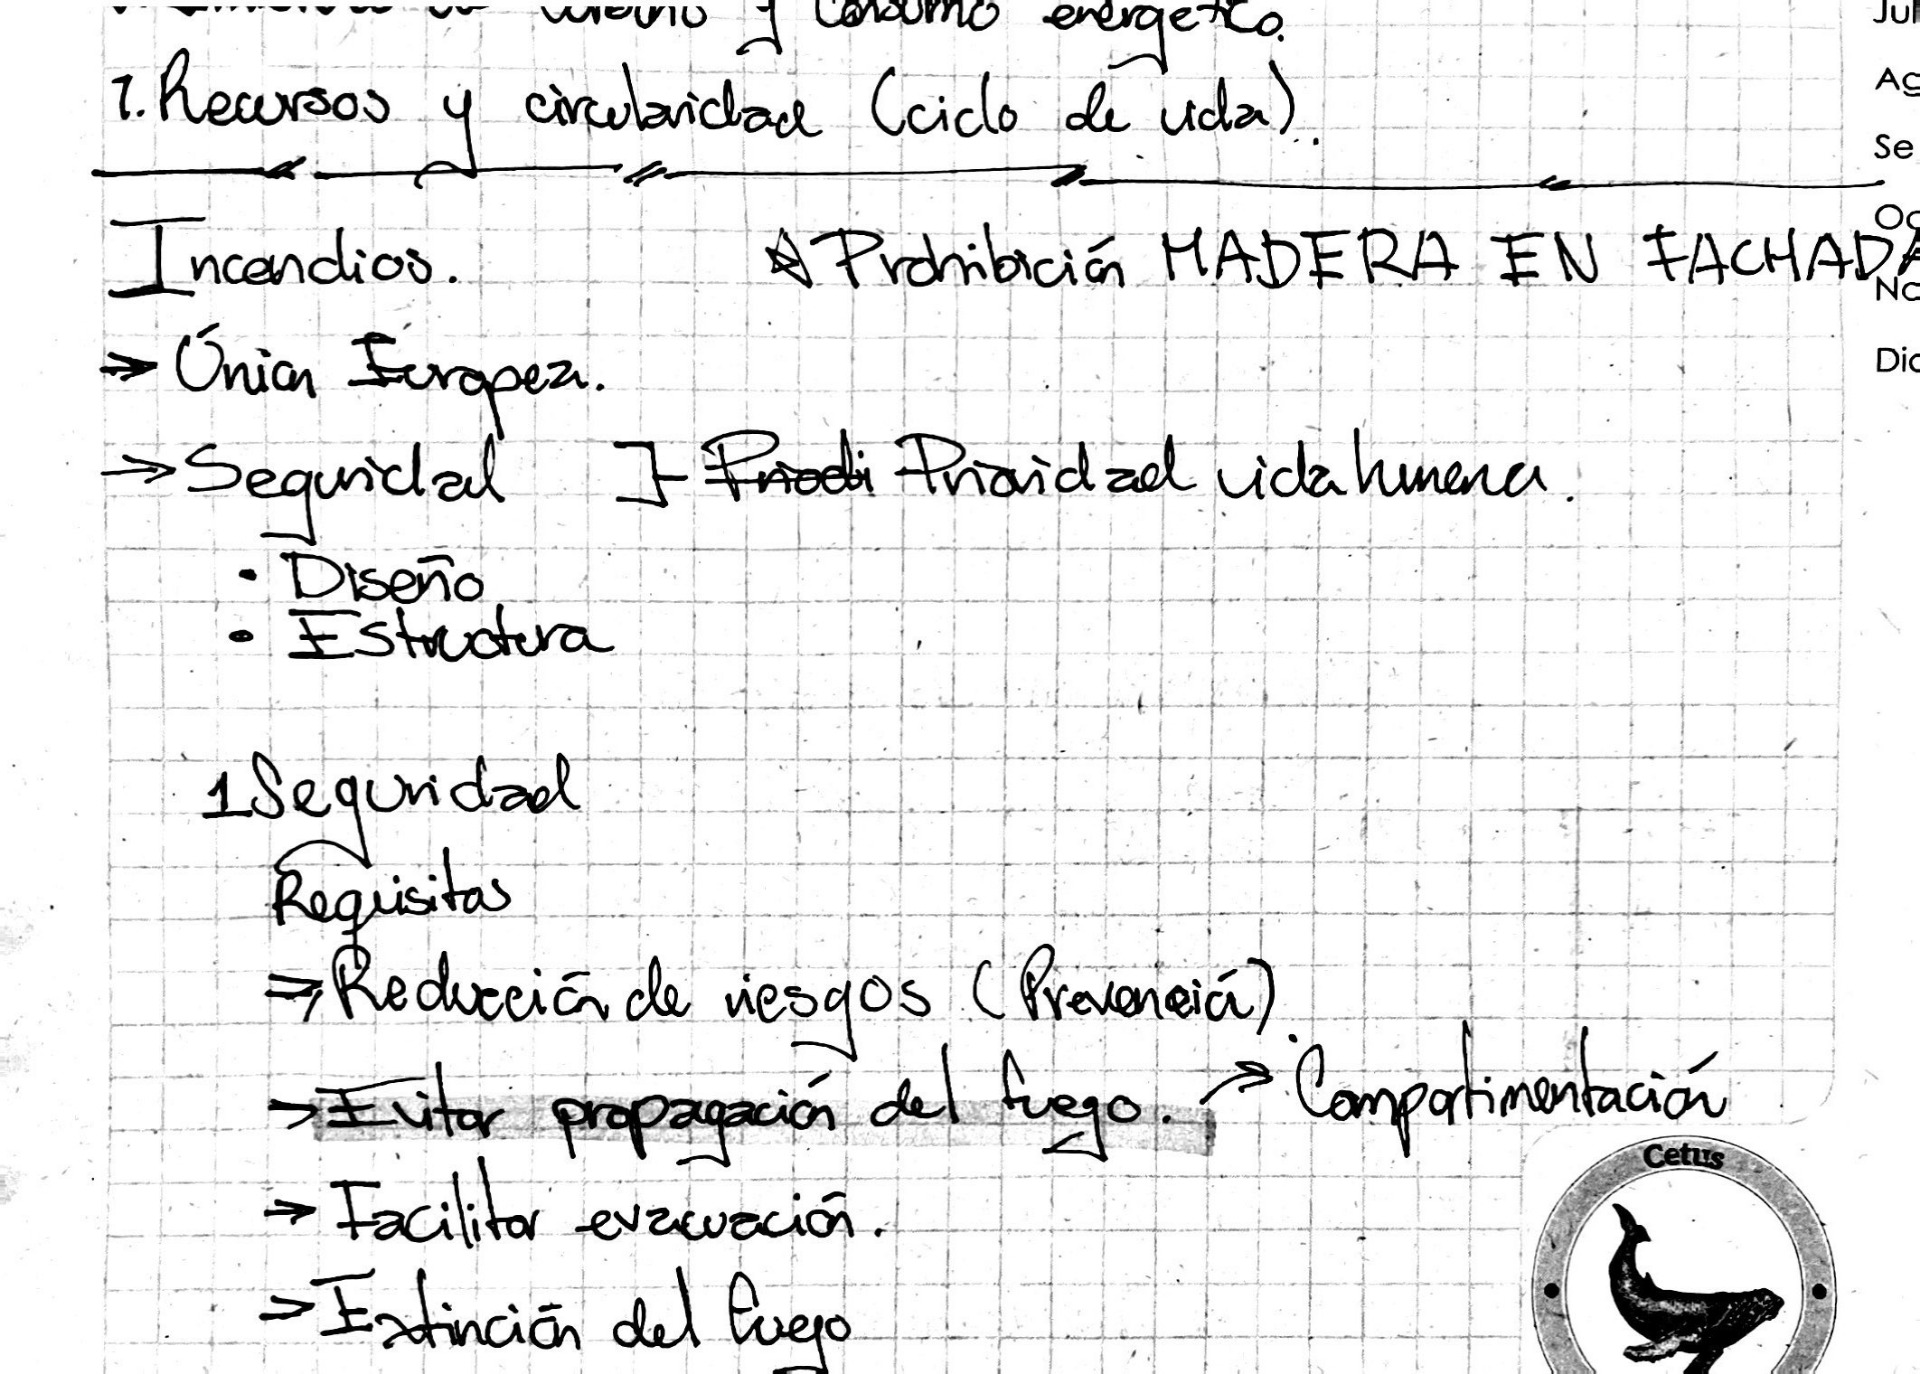 y consumo energético.
7. Recursos y circularidad (ciclo de vida).
Incendios. Prohibición MADERA EN FACHADA
⇒ Únion Europea.
⇒ Seguridad ]- Priodi Prioridad vida humana.
• Diseño
• Estructura
1 Seguridad
Requisitos
⇒ Reducción de riesgos (Prevención)
→ Evitar propagación del fuego. → Compartimentación
⇒ Facilitar evacuación.
⇒ Extinción del fuego
Jul
Ag
Se
Oc
No
Dic
Cetus